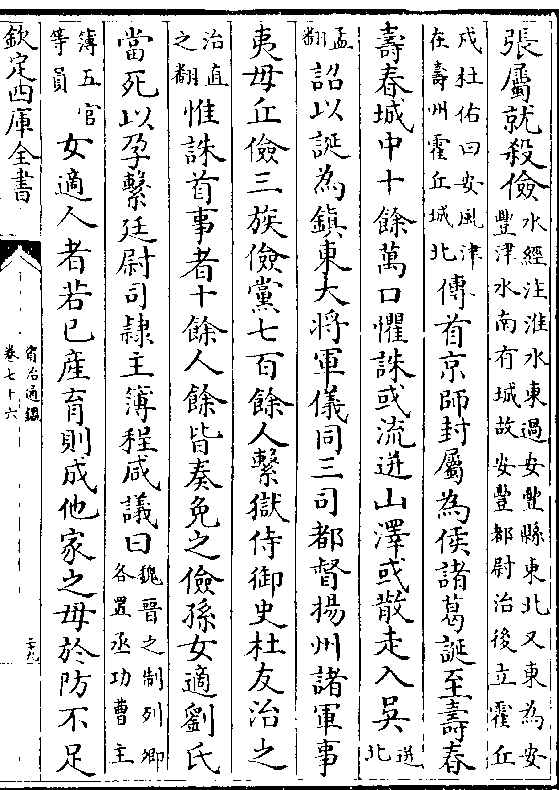 張屬就殺儉水經注淮水東過安豐縣東北又東為安豐津水南有城故安豐都尉治後立霍丘
戍杜佑曰安風津在壽州霍丘城北傳首京師封屬為侯諸葛誕至壽春
壽春城中十餘萬口懼誅或流迸山澤或散走入吳迸北
孟翻詔以誕為鎮東大將軍儀同三司都督揚州諸軍事
夷毋丘儉三族儉黨七百餘人繫獄侍御史杜友治之
治直之翻惟誅首事者十餘人餘皆奏免之儉孫女適劉氏
當死以孕繫廷尉司隸主簿程咸議曰魏晉之制列卿各置丞功曹主
簿五官等員女適人者若已産育則成他家之母於防不足
欽定四庫全書
資治通鑑
卷七十六
二十九